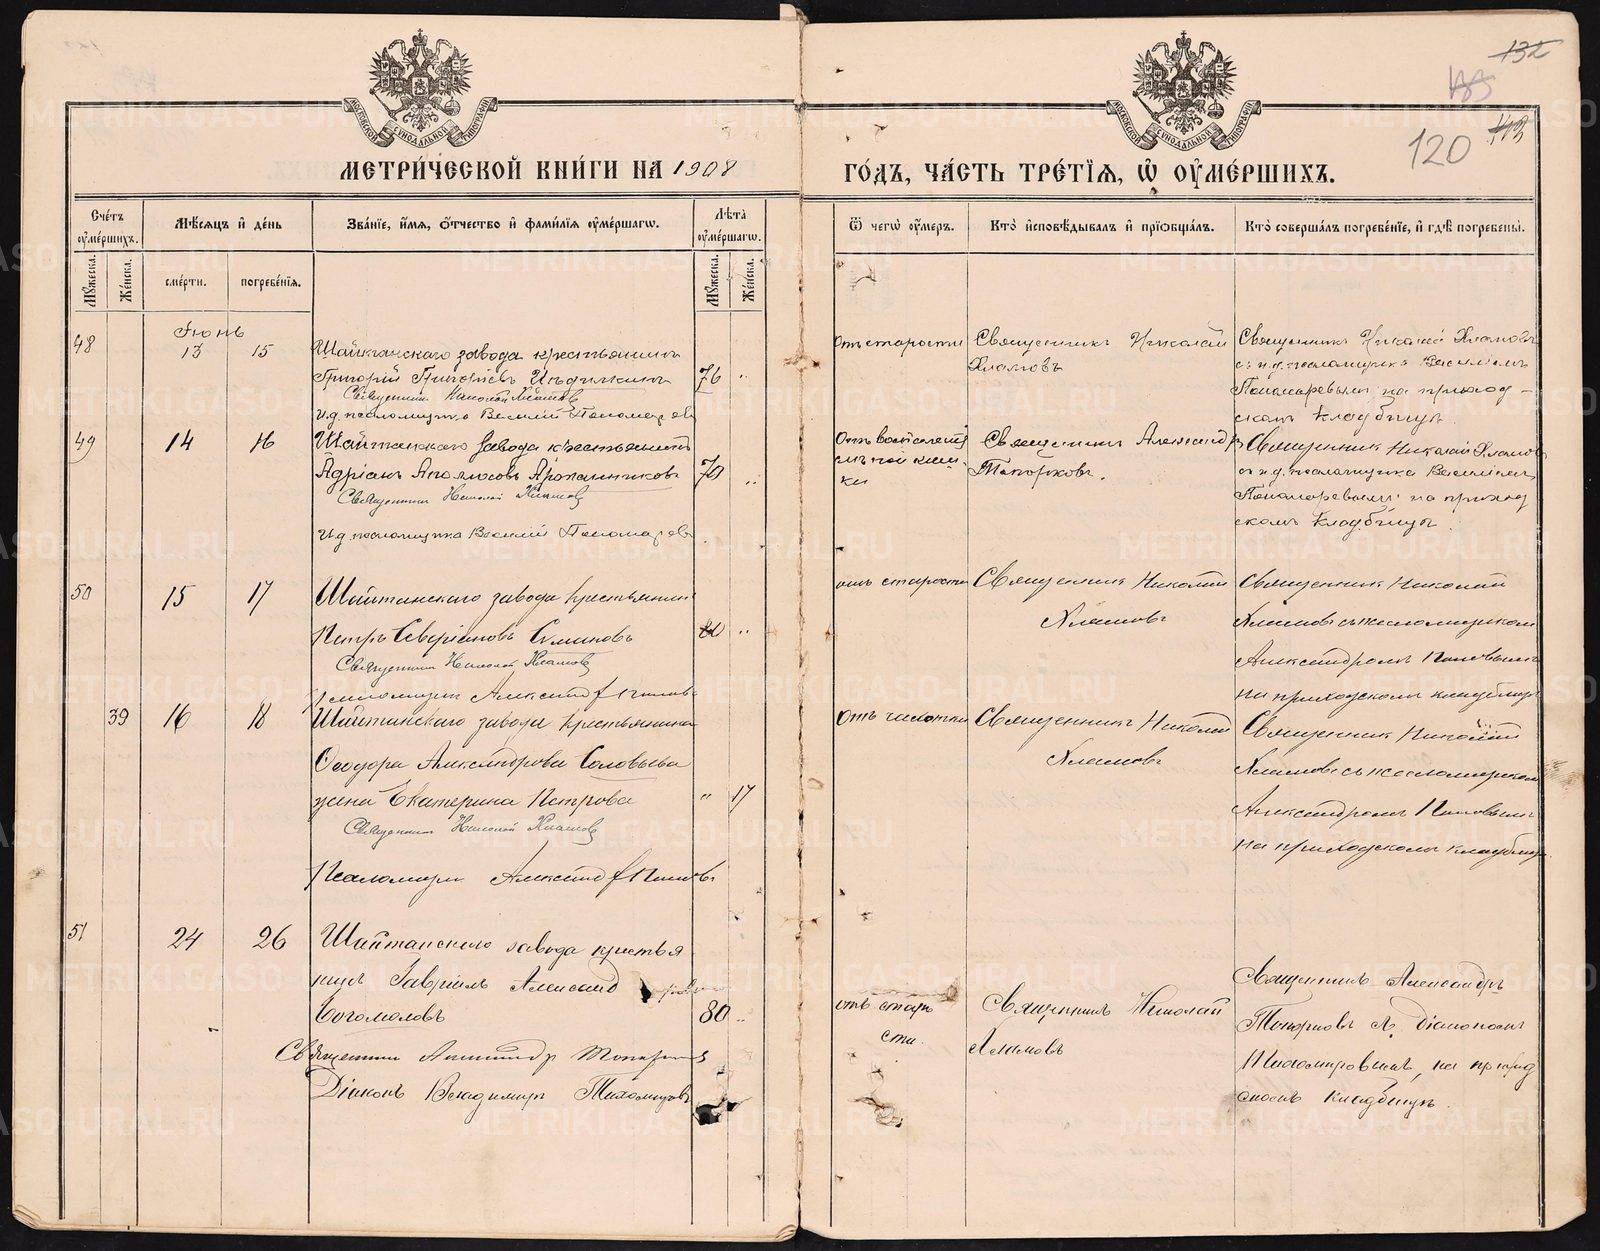 132
113
120
МЕТРИ́ЧЕСКОЙ КНИ́ГИ НА 1908
ГО́ДЪ, ЧА́СТЬ ТРЕ́ТІЯ, Ѽ ОУ҆МЕ́РШИХЪ.
МОСКОВСКОЙ СѴНОДАЛЬНОЙ ТИПОГРАФІИ
МОСКОВСКОЙ СѴНОДАЛЬНОЙ ТИПОГРАФІИ
Сче́тъ оу҆ме́ршихъ.
Мѣ́сяцъ и҆ де́нь
Зва́ніе, и҆́мя, ѻ҆́тчество и҆ фами́лія оу҆ме́ршагѡ.
Лѣ́та оу҆ме́ршагѡ.
Ѿ чегѡ̀ оу҆́меръ.
Кто̀ и҆сповѣ́дывалъ и҆ пріѻбща́лъ.
Кто̀ соверша́лъ погребе́ніе, и҆ гдѣ̀ погребены̀.
Мꙋ́жеска.
Же́нска.
сме́рти.
погребе́нія.
Мꙋ́жеска.
Же́нска.
Іюнь
48 13 15
Шайтанскаго завода крестьянинъ
Григорій Григорьевъ
76 "
Священникъ Николай Хламовъ
И.д. псаломщика Василій Пономаревъ
Отъ старости
Священникъ Николай
Хламовъ
Священникъ Николай Хламовъ
съ и.д. псаломщика Василіемъ
Пономаревымъ на приход-
скомъ кладбищѣ.
49 14 16
Шайтанскаго завода крестьянинъ
Адріанъ
70 "
Священникъ Николай Хламовъ
И.д. псаломщика Василій Пономаревъ
Отъ
ки
Священникъ Александръ
Топорковъ.
Священникъ Николай Хламовъ
съ и.д. псаломщика Василіемъ
Пономаревымъ на приход
скомъ кладбищѣ.
50 15 17
Шайтанскаго завода крестьянинъ
Петръ Северіановъ
80 "
Священникъ Николай Хламовъ
Псаломщикъ Александръ Поповъ
отъ старости
Священникъ Николай
Хламовъ
Священникъ Николай
Хламовъ съ псаломщикомъ
Александромъ Поповымъ
на приходскомъ кладбищѣ
39 16 18
Шайтанскаго завода крестьянина
Ѳеодора Александрова Соловьева
жена Екатерина Петрова
" 17
Священникъ Николай Хламовъ
Псаломщикъ Александръ Поповъ
Отъ чахотки
Священникъ Николай
Хламовъ
Священникъ Николай
Хламовъ съ псаломщикомъ
Александромъ Поповымъ
на приходскомъ кладбищѣ
51 24 26
Шайтанскаго завода крестья
нинъ Гавріилъ Александровъ
Богомоловъ
80 "
Священникъ Александръ Топорковъ
Діаконъ Владимиръ Тихомировъ
отъ старо
сти.
Священникъ Николай
Хламовъ
Священникъ Александръ
Топорковъ съ діакономъ
Тихомировымъ, на приход
скомъ кладбищѣ.
METRIKI.GASO-URAL.RU